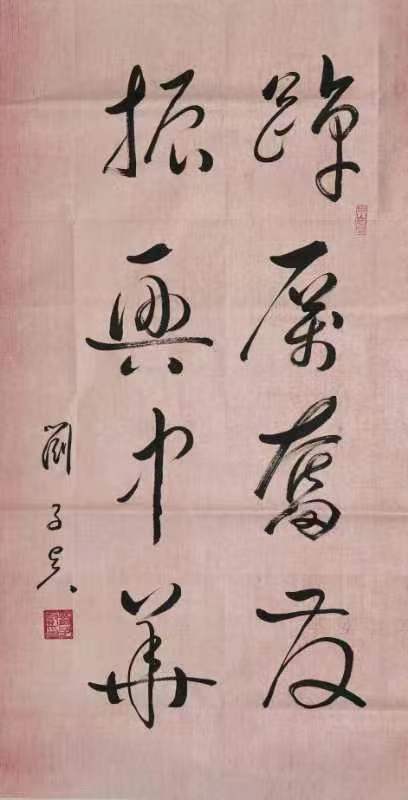 踔厲奮发
振興中華
劉子安